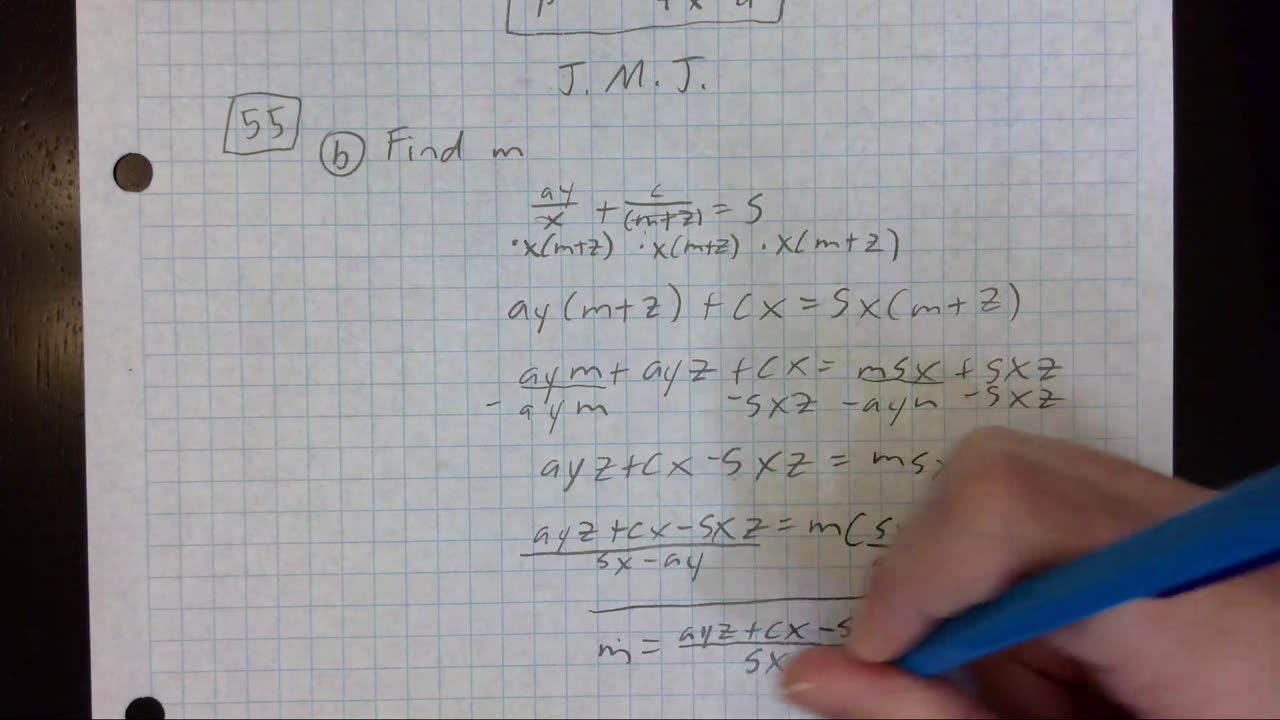 J. M. J.
55 b Find m
ay/x + c/(m+z) = s
·x(m+z) ·x(m+z) ·x(m+z)
ay(m+z) + cx = sx(m+z)
aym + ayz + cx = msx + sxz
-aym -sxz -aym -sxz
ayz+cx-sxz = ms
ayz+cx-sxz = m(s
sx-ay
m = ayz+cx-s
sx